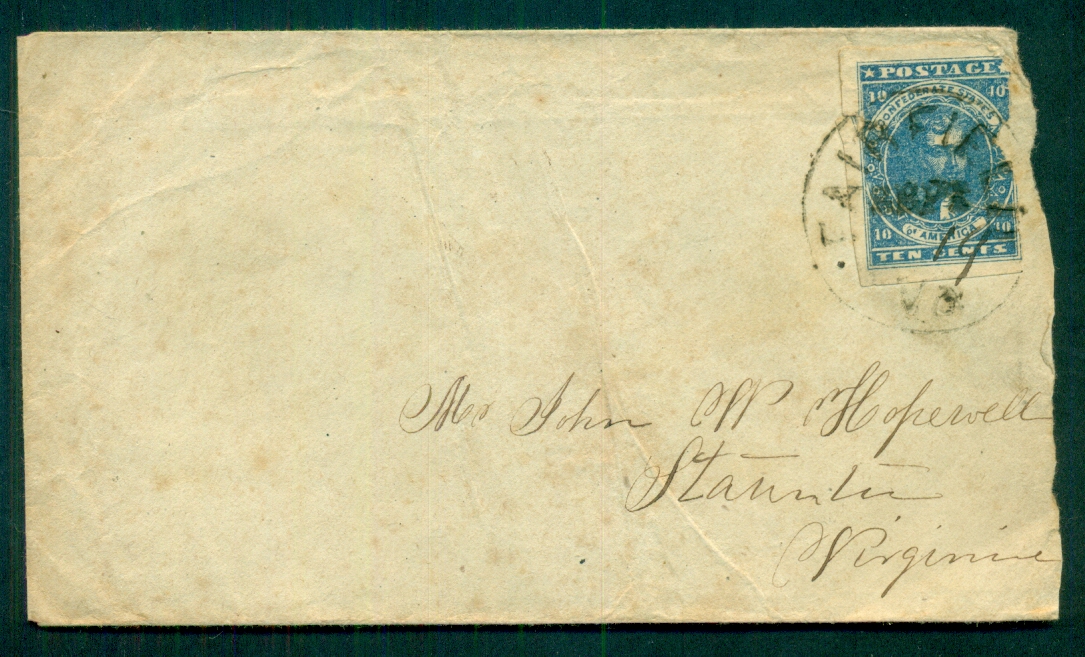 POSTAGE
10 10
CONFEDERATE STATES
OF AMERICA
10 10
TEN CENTS
FAIRFIELD
11
VA
Mr John W Hopewell
Staunton
Virginia